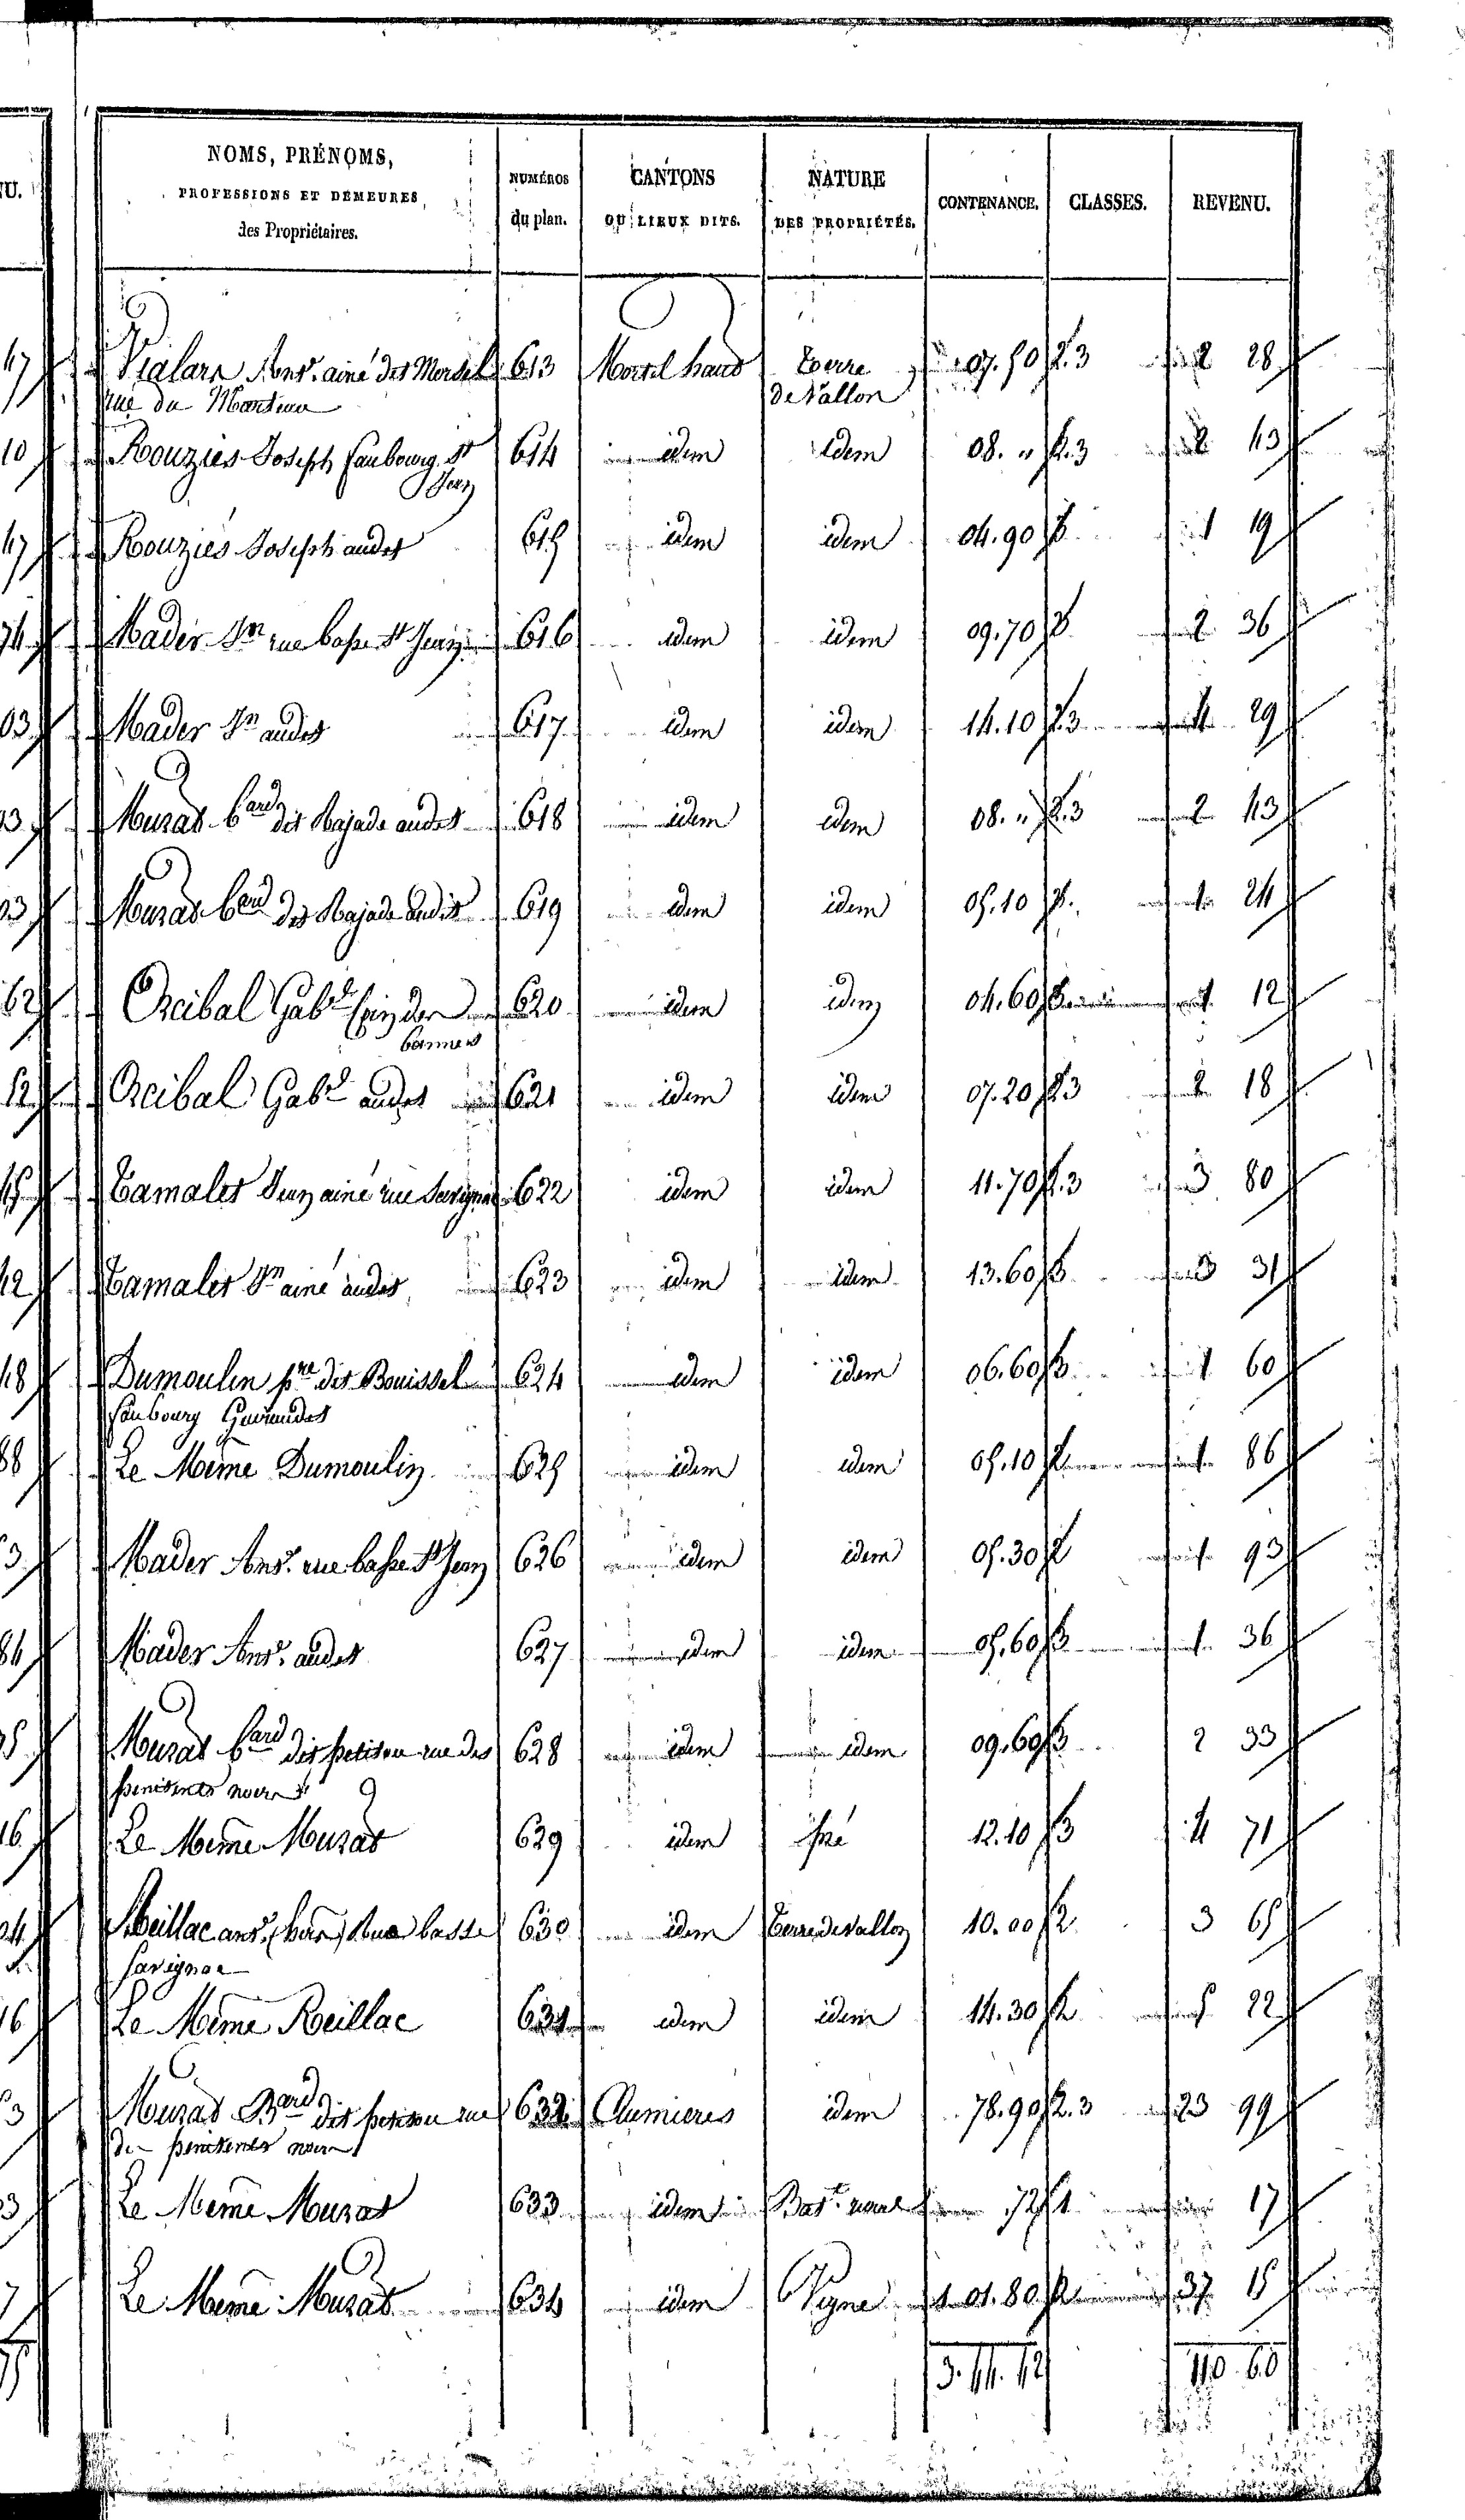 NOMS, PRÉNOMS,
PROFESSIONS ET DEMEURES,
des Propriétaires.
NUMÉROS
du plan.
CANTONS
OU LIEUX DITS.
NATURE
DES PROPRIÉTÉS.
CONTENANCE.
CLASSES.
REVENU.
Vialars Ant. ainé dit Mortel 613 Mortel haut Terre 07.50 2.3 2 28
rue du Manteau de Vallon
Rouziès Joseph faubourg St 614 idem idem 08. " 2.3 2 43
Jean
Rouziès Joseph audit 615 idem idem 04.90 3 1 19
Mader Jn rue basse St Jean 616 idem idem 09.70 3 2 36
Mader Jn audit 617 idem idem 14.10 2.3 4 29
Murat bard dit Rajade audit 618 idem idem 08. " 2.3 2 43
Murat bard dit Rajade audit 619 idem idem 05.10 3. 1 24
Orcibal Gabl 620 idem idem 04.60 3 1 12
Carmes
Orcibal Gabl audit 621 idem idem 07.20 2.3 2 18
Tamalet Jean ainé rue Savignac 622 idem idem 11.70 2.3 3 80
Tamalet Jn ainé audit 623 idem idem 13.60 3 3 31
Dumoulin pre dit Bouissel 624 idem idem 06.60 3 1 60
faubourg Guiraudet
Le Même Dumoulin 625 idem idem 05.10 2 1 86
Mader Ant. rue basse St Jean 626 idem idem 05.30 2 1 93
Mader Ant. audit 627 idem idem 05.60 3 1 36
Murat bard dit petitou rue des 628 idem idem 09.60 3 2 33
penitents noirs
Le Même Murat 629 idem Pré 12.10 3 4 71
Reillac ant. Rue basse 630 idem Terre de Vallon 10.00 2 3 65
Savignac
Le Même Reillac 631 idem idem 14.30 2 5 22
Murat Bard dit petitou rue 632 Clumieres idem 78.90 2.3 23 99
des penitents noirs
Le Même Murat 633 idem Bat. rural 72 1 17
Le Même Murat 634 idem Vigne 1.01.80 2 37 15
3.44.12 110.60